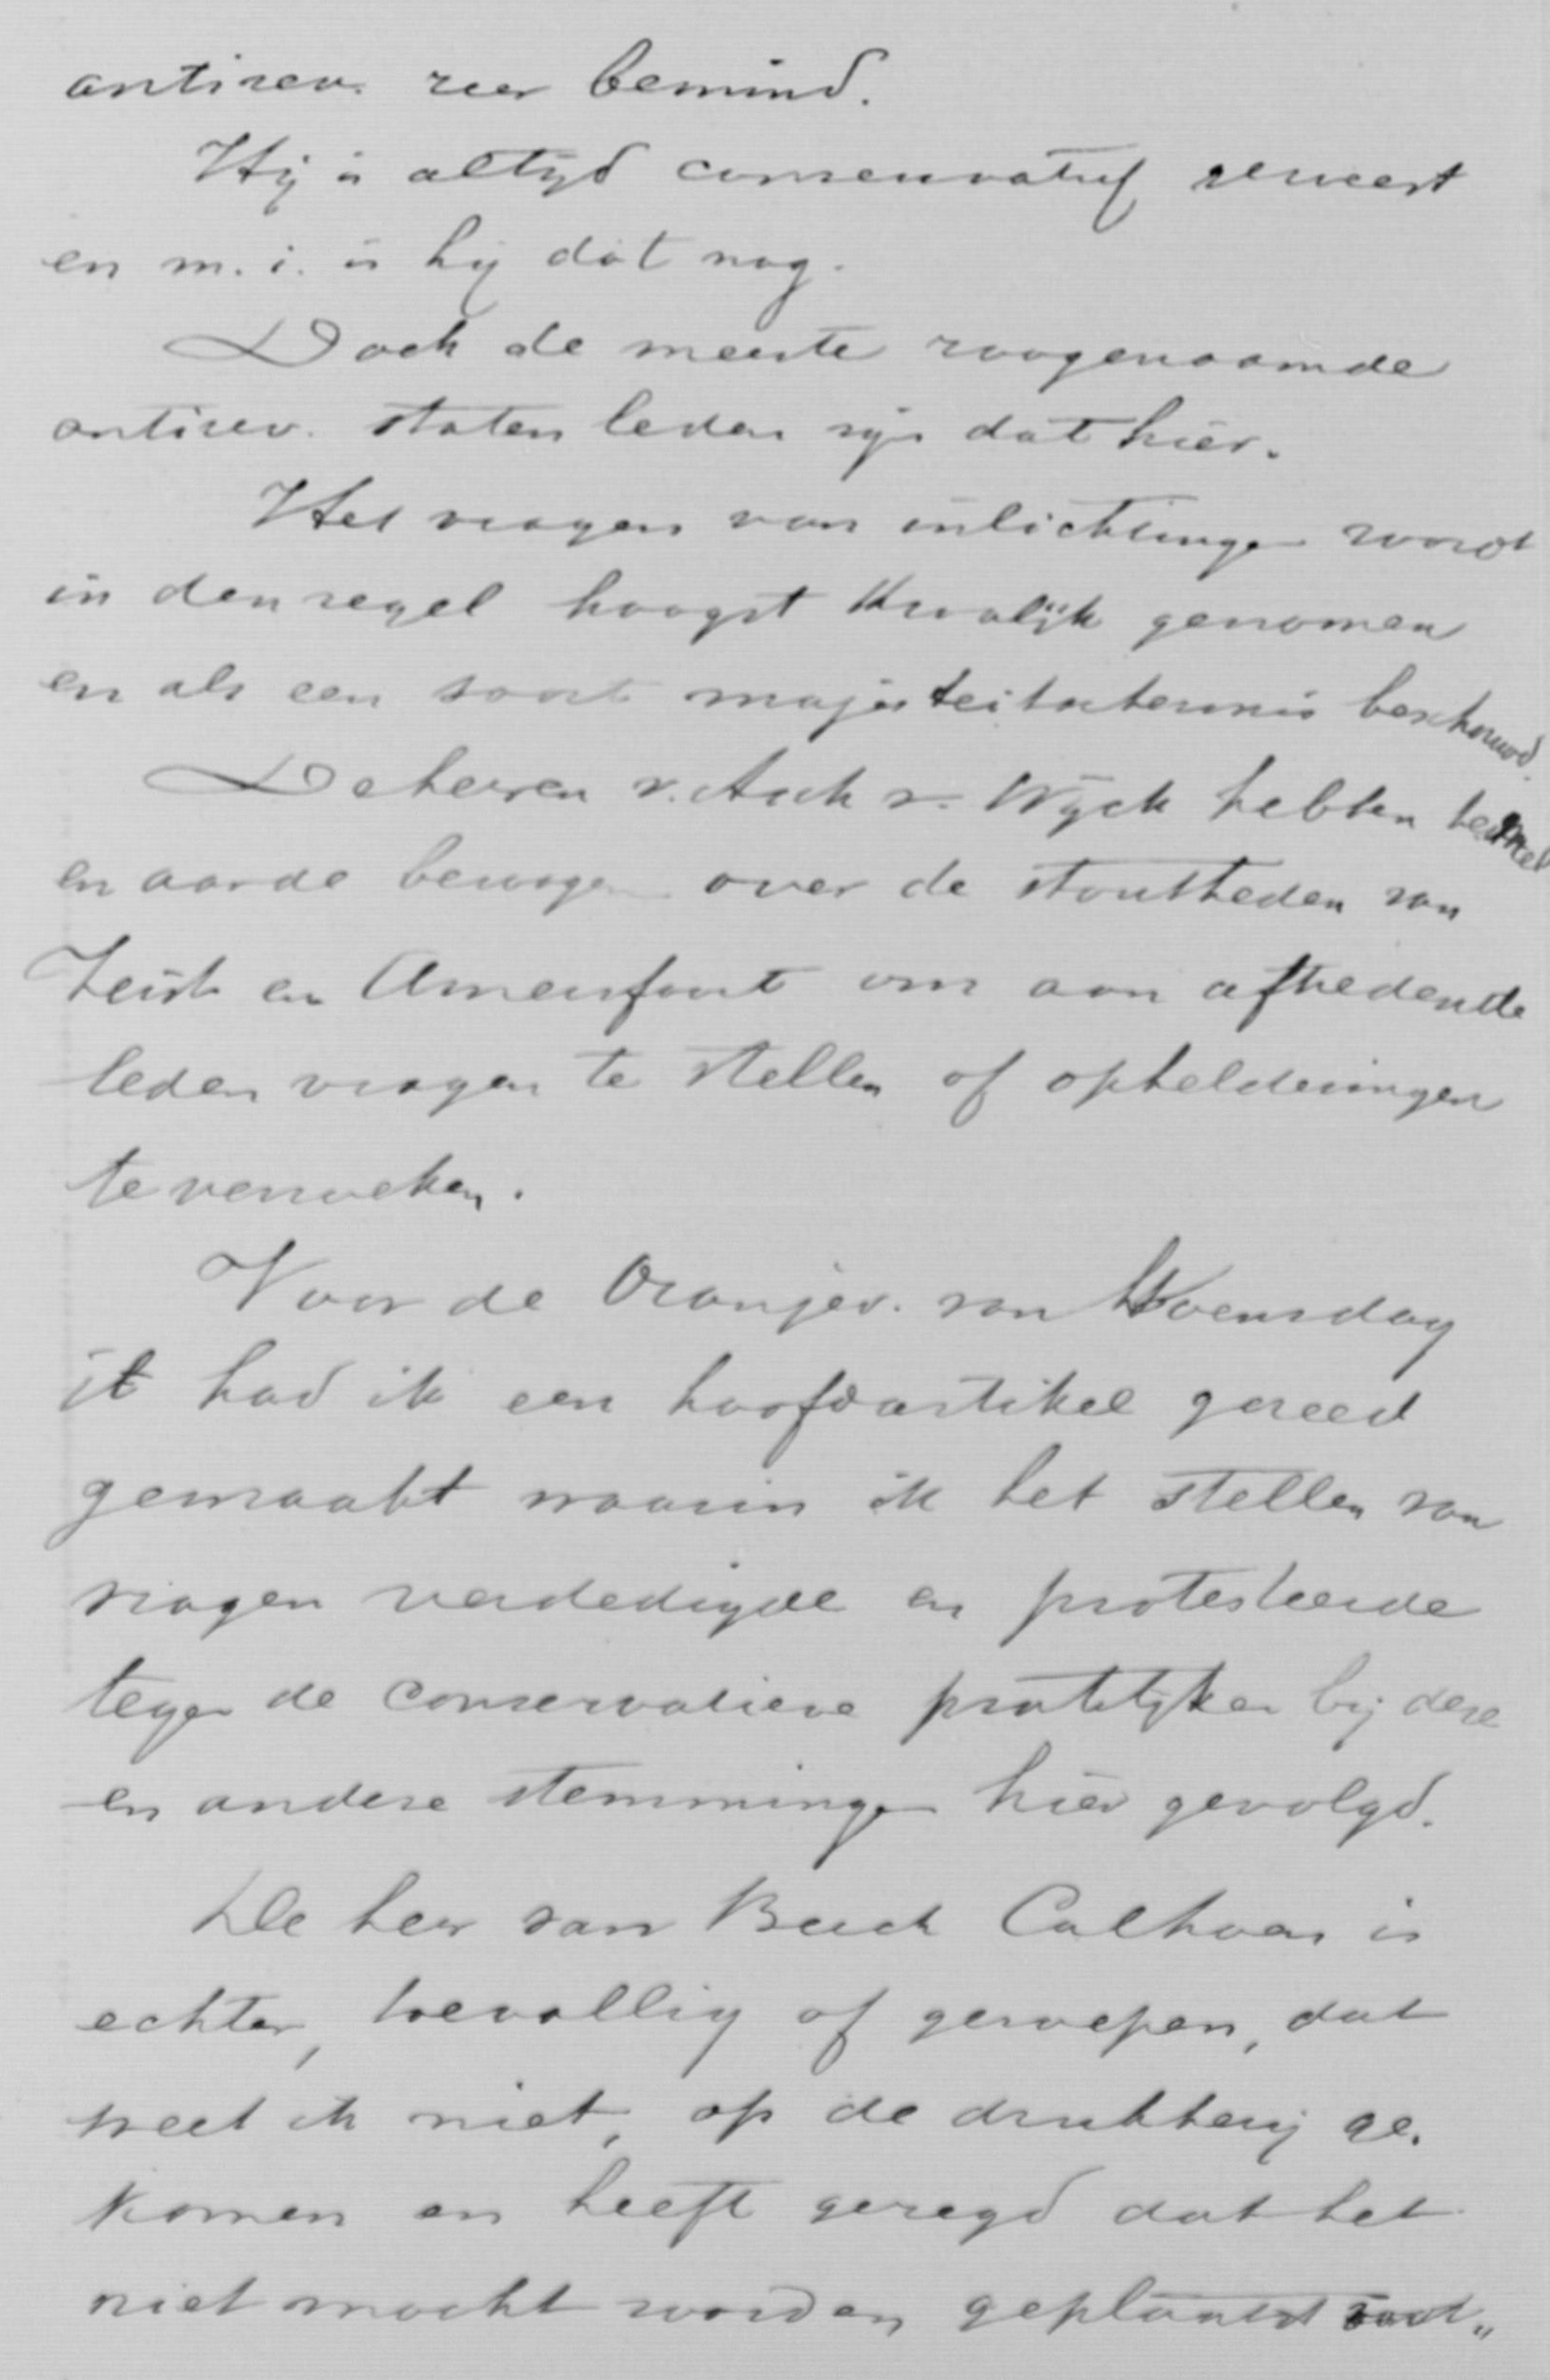 antirev. zeer bemind.
Hij is altijd conservatief geweest
en m.i. is hij dat nog.
Doch de meeste zoogenaamde
antirev. statenleden zijn dat hier.
Het vragen van inlichtingen wordt
in den regel hoogst kwalijk genomen
en als een soort majesteitschennis beschouwd.
De heeren v. Asch v. Wijck hebben hemel
en aarde bewogen over de stoutheden van
Zeist en Amersfoort om aan aftredende
leden vragen te stellen of ophelderingen
te verzoeken.
Voor de Oranjev. van Woensdag
jl had ik een hoofdartikel gereed
gemaakt waarin ik het stellen van
vragen verdedigde en protesteerde
tegen de conservatieve praktijken bij deze
en andere stemmingen hier gevolgd.
De heer van Beeck Calkoen is
echter, toevallig of geroepen, dat
weet ik niet, op de drukkerij ge-
komen en heeft gezegd dat het
niet mocht worden geplaatst